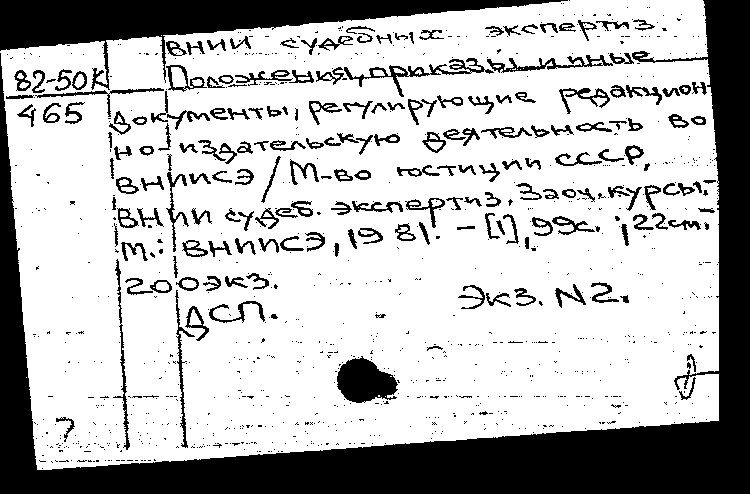 ВНИИ судебных экспертиз.
82-50К Положения, приказы и иные
465 документы, регулирующие редакцион
но-издательскую деятельность во
ВНИИСЭ / М-во юстиции СССР,
ВНИИ судеб. экспертиз. Заоч. курсы.-
М.: ВНИИСЭ, 1981. - [1], 99с. ; 22см.-
200экз.
ДСП. Экз. N2.
7